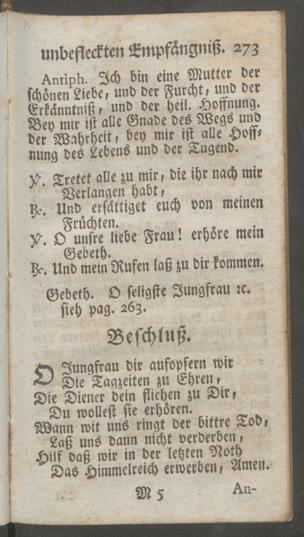 unbefleckten Empfängniß. 273
Antiph. Ich bin eine Mutter der
schönen Liebe, und der Furcht, und der
Erkänntniß, und der heil. Hoffnung.
Bey mir ist alle Gnade des Wegs und
der Wahrheit, bey mir ist alle Hoff-
nung des Lebens und der Tugend.
℣. Tretet alle zu mir, die ihr nach mir
Verlangen habt,
℟. Und ersättiget euch von meinen
Früchten.
℣. O unsre liebe Frau! erhöre mein
Gebeth.
℟. Und mein Rufen laß zu dir kommen.
Gebeth. O seligste Jungfrau ꝛc.
sieh pag. 263.
Beschluß.
O Jungfrau dir aufopfern wir
Die Tagzeiten zu Ehren,
Die Diener dein fliehen zu Dir,
Du wollest sie erhören.
Wann wit uns ringt der bittre Tod,
Laß uns dann nicht verderben,
Hilf daß wir in der letzten Noth
Das Himmelreich erwerben, Amen.
M 5 An-